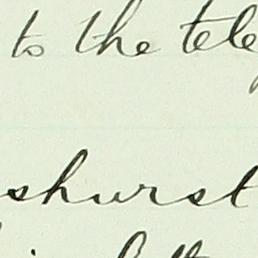 to the tele
shurst